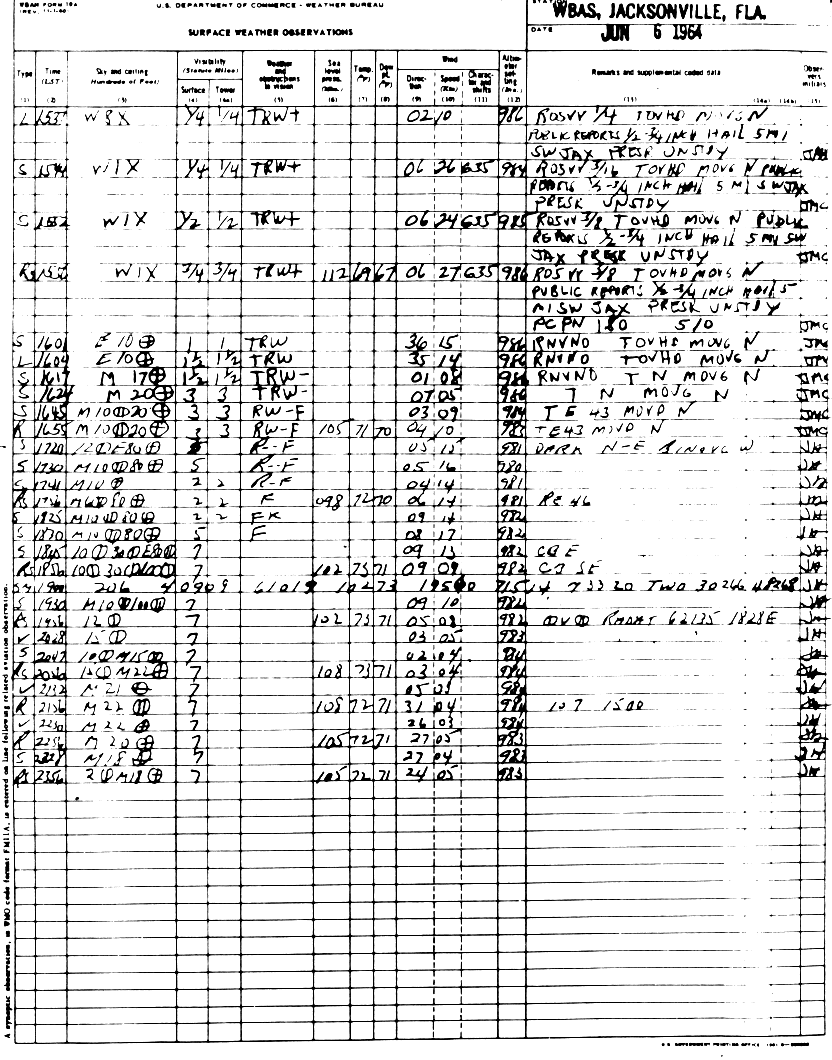 WBAN FORM 10A
U.S. DEPARTMENT OF COMMERCE - WEATHER BUREAU
STATION
WBAS, JACKSONVILLE, FLA.
SURFACE WEATHER OBSERVATIONS
DATE JUN 6 1964
Type Time (LST) Sky and ceiling (Hundreds of Feet) Visibility (Statute Miles) Surface Tower Weather and obstructions to vision Sea level press. (Mbs.) Temp. (°F) Dew pt. (°F) Wind Direction Speed (Kts) Character and shifts Altimeter setting (Ins.) Remarks and supplemental coded data Observers initials
(1) (2) (3) (4) (4a) (5) (6) (7) (8) (9) (10) (11) (12) (13) (14a) (15)
L 1537 W8X 1/4 1/4 TRW+ 02 10 986 RDSVV 1/4 TOVHD MOVG N
PUBLIC REPORTS 1/2-3/4 INCH HAIL 5 MI
SW JAX PRESR UNSTDY
S W1X 1/4 1/4 TRW+ 06 26 G35 984 RDSVV 3/16 TOVHD MOVG N PUBLIC
REPORTS 1/2-3/4 INCH HAIL 5 MI SW JAX
PRESR UNSTDY JMC
S 1552 W1X 1/2 1/2 TRW+ 06 24 G35 985 RDSVV 3/8 TOVHD MOVG N PUBLIC
REPORTS 1/2-3/4 INCH HAIL 5 MI SW
JAX PRESR UNSTDY JMC
W1X 3/4 3/4 TRW+ 112 69 67 06 27 G35 986 RDSVV 3/8 TOVHD MOVG N
PUBLIC REPORTS 1/2-3/4 INCH HAIL 5
MI SW JAX PRESR UNSTDY
PCPN 180 510 JMC
S 1601 E10⊕ 1 1 TRW 36 15 986 RNVNO TOVHD MOVG N
L 1604 E10⊕ 1 1/2 1 1/2 TRW 35 14 986 RNVNO TOVHD MOVG N
S 1617 M 17⊕ 1 1/2 1 1/2 TRW- 01 08 986 RNVNO T N MOVG N JMC
S 1624 M 20⊕ 3 3 TRW- 07 05 986 T N MOVG N JMC
S 1645 M10⦶20⊕ 3 3 RW-F 03 09 984 TE 43 MOVD N JMC
R 1655 M10⦶20⊕ 3 3 RW-F 105 71 70 04 10 983 TE43 MOVD N JMC
S 1720 12⦶E80⊕ R--F 05 15 981 DARK N-E
S 1730 M10⦶80⊕ 5 R--F 05 16 980
S 1741 M10⊕ 2 2 R-F 04 14 981
RS 1756 80⊕ 2 2 F 098 72 70 06 14 981 RE 46
S 1825 M10⦶80⊕ 2 2 FK 09 14 982
S 1830 M10⦶80⊕ 5 F 08 17 982
S 1845 10⦶30⦶E80⦶ 7 09 13 982 CB E
RS 1856 10⦶30⦶100⦶ 7 102 73 71 09 09 982 CB SE
206 40909 61019 10273 19500 715 14 733 20 TWO 30266 48268
S 1930 M10⦶100⦶ 7 09 10 982
R 1956 12⦶ 7 102 73 71 05 08 982 RADAT 62135 1828E
2028 15⦶ 7 03 05 983
S 2047 10⦶M15⦶ 7 02 04 984
RS 2056 M22⊕ 7 108 73 71 03 04 984
2132 M 21 ⊕ 7 05 984
R 2156 M 22 7 108 72 71 31 04 984 107 1500
2230 M 22 ⊕ 7 26 03 984
R 2256 M 20 ⊕ 7 105 72 71 27 05 983
S 2328 M18⊕ 7 27 04 983
2356 2⦶M18⊕ 7 105 72 71 24 05 983
A synoptic observation, in WMO code format FM11A, is entered on line following related aviation observation.